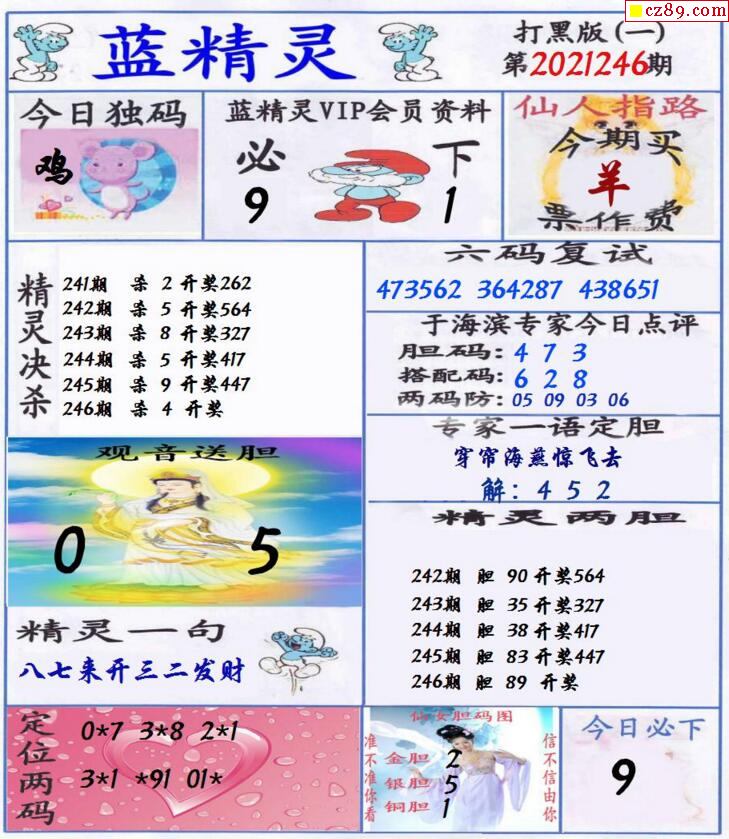 cz89.com
蓝精灵
打黑版(一)
第2021246期
今日独码
鸡
蓝精灵VIP会员资料
必 下
9 1
仙人指路
今期买
羊
票作费
精灵决杀
241期 杀 2 开奖262
242期 杀 5 开奖564
243期 杀 8 开奖327
244期 杀 5 开奖417
245期 杀 9 开奖447
246期 杀 4 开奖
六码复试
473562 364287 438651
于海滨专家今日点评
胆码: 4 7 3
搭配码: 6 2 8
两码防: 05 09 03 06
专家一语定胆
穿帘海燕惊飞去
解: 4 5 2
观音送胆
0 5
精灵两胆
242期 胆 90 开奖564
243期 胆 35 开奖327
244期 胆 38 开奖417
245期 胆 83 开奖447
246期 胆 89 开奖
精灵一句
八七来开三二发财
定位两码
0*7 3*8 2*1
3*1 *91 01*
仙女胆码图
准不准你看
金胆 2
银胆 5
铜胆 1
信不信由你
今日必下
9